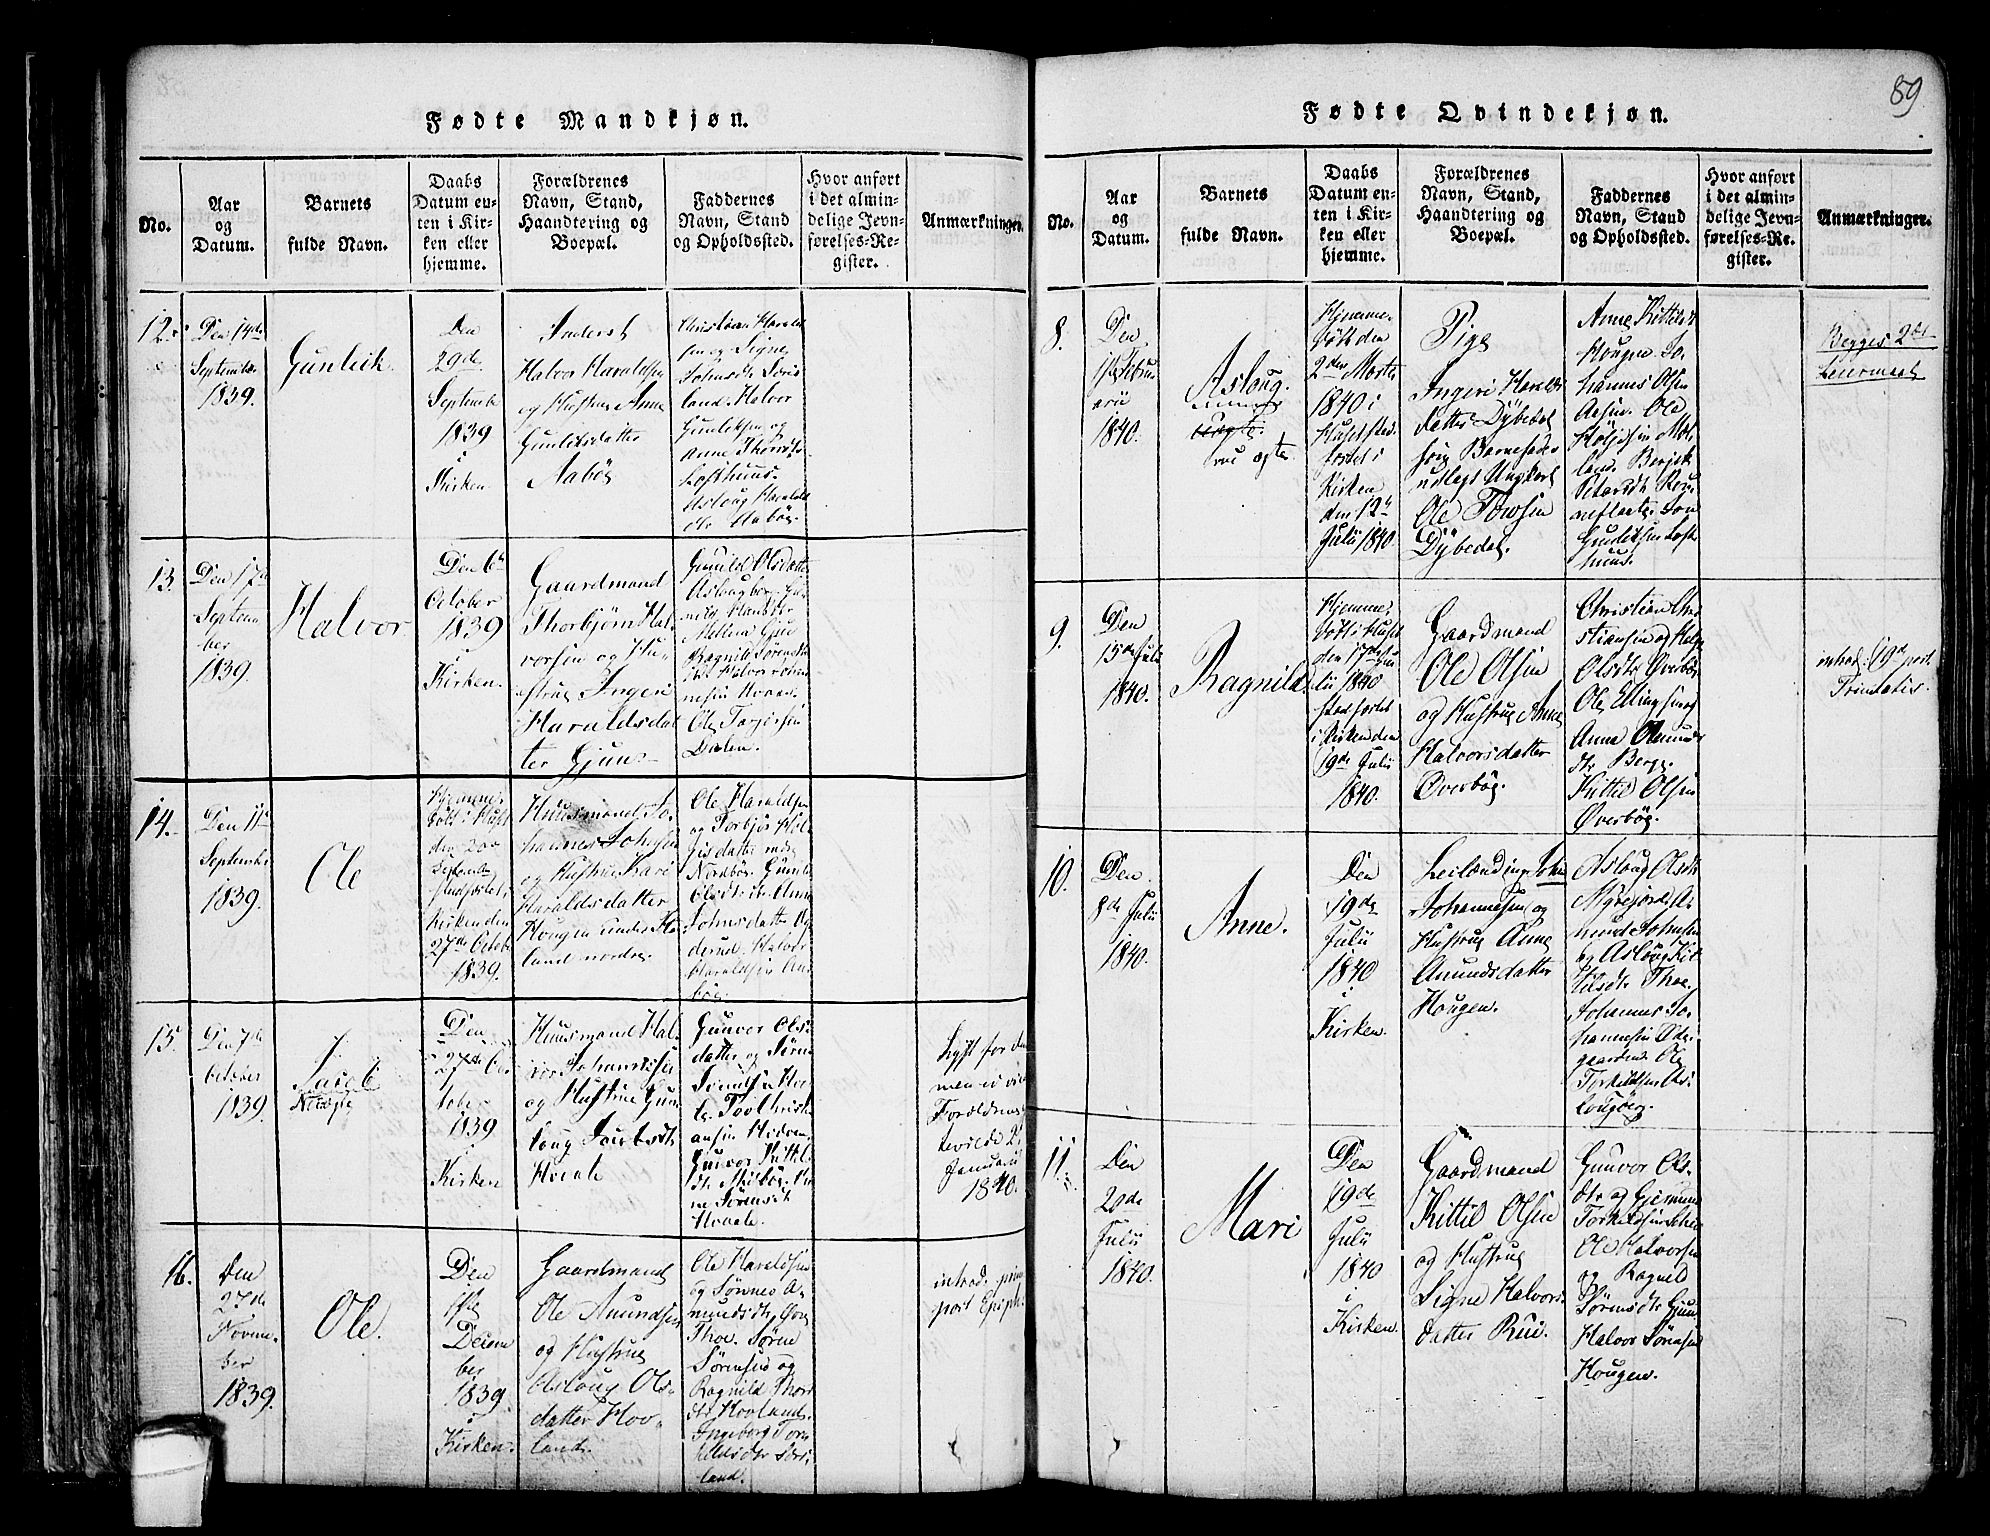 89
Fødte Mandkjøn.
No.
Aar
og
Datum.
Barnets
fulde Navn.
Daabs
Datum en-
ten i Kir-
ken eller
hjemme.
Forældrenes
Navn, Stand,
Haandtering og
Boepæl.
Faddernes
Navn, Stand
og Opholdssted.
Hvor anført
i det almin-
delige Jevn-
førelses-Re-
gister.
Anmærkninger.
12.
Den 14de
September
1839.
Gunleik.
Den
29de
September
1839
i
Kirken
Halvor Haraldsen
og Hustrue Anne
Gunleksdatter
Aabøe
Christian Harald
sen og Signe
Johnsdt
land. Halvor
Gunleksen og
Anne
Lofthuus.
Aslaug Harald
dtr Aabøe.
13.
Den 17de
Septem
ber
1839.
Halvor
Den 6te
October
1839
i
Kirken.
Gaardmand
Thorbjørn Hal
vorsen og Hu-
strue Ingeri
Haraldsdat
ter Gjuus
Gunild Olsdatter
Aslaug
Ragnild Sørensdt
Halvor
Hvaal.
Ole Torgersen
Dalen.
14.
Den 11te
September
1839.
Ole
Hjemme-
døbt i Huset
den
September
stadfæstet i
Kirken den
27de Octobr
1839.
Huusmand Jo-
hannes Johnsen
og Hustrue Kari
Haraldsdatter
Hougen under Ho
land nordre
Ole Haraldsen
og Torbjør Hol-
jisdatter
Nordbøe. Gunild
Olsdtr ib. Anne
Johnsdatter
Halvor
Haraldsen Aas
bøe.
15.
Den 7de
October
1839.
Jacob
Den
27de Oc
tober
1839
i
Kirken
Huusmand Hal-
vor Johannessen
og Hustrue Gun
loug Jacobsdtr
Hvale
Gunvor Ols-
datter og Søren
Svendsen Hva-
le.
Gunvor Kittel
dtr
ne Sørensdt
Hvaale.
men ei
Forældrene
Januarii
1840.
16.
Den
27de
Novem-
ber
1839.
Ole.
Den
1ste
Decem
ber
1839.
i
Kirken.
Gaardmand
Ole Amundsen
og Hustrue
Aslaug Ols-
datter Hov-
land.
Ole Haraldsen
og Sønnes A-
mundsdtr
Thoe. Søren
Sørensen og
Ragnild Thor
dtr Hovland.
Ingeborg Tor
kildsdtr
land.
introd. prim
port Epiph.
Fødte Qvindekjøn.
No.
Aar
og
Datum.
Barnets
fulde Navn.
Daabs
Datum en-
ten i Kir-
ken eller
hjemme.
Forældrenes
Navn, Stand,
Haandtering og
Boepæl.
Faddernes
Navn, Stand
og Opholdssted.
Hvor anført
i det almin-
delige Jevn-
førelses-Re-
gister.
Anmærkninger.
8.
Den
1ste Febru
arii
1840.
Aslaug.
uægte
Hjemme-
døbt den
2den Marts
1840 i
Huset stad-
fæstet i
Kirken
den 12te
Julii 1840
Pige
Ingeri Haralds
datter Dybedal
Barnefader
udlagt Ungkarl
Ole Towsen
Dybedal.
Anne Kittilsdt
Hougen. Jo
hannes Olsen
Aasen. Ole
Holjesen Mæ
land. Bergit
Petersdt
Jon
Gunleksen Loft-
huus.
Begges 2det
Leiermaal
9.
Den
15de Juli
1840.
Ragnild
Hjemme-
døbt i Huset
den 17de Ju
lii 1840
stadfæstet
i Kirken den
19de Julii
1840.
Gaardmand
Ole Olsen
og Hustrue Anne
Halvorsdatter
Øverbøe.
Christian Chri
stiansen og Helge
Olsdtr Øverbøe
Ole Ellingsen og
Anne Amunds
dtr Berge.
Kittil Olsen
Øverbøe.
introd. 19d post
Trinitatis.
10.
Den
8de Julii
1840.
Anne.
Den
19de
Julii
1840
i
Kirken.
Leilænding John
Johannesen og
Hustrue Anne
Amundsdatter
Hougen.
Aslaug Olsdt
A-
mund Johnsen
og Aslaug Kit
tilsdtr Thoe.
Johannes Jo-
hannesen
gaarden. Ole
Torkildsen As-
lougberg.
11.
Den
20de
Julii
1840.
Mari
Den
19de
Julii
1840
i
Kirken.
Gaardmand
Kittil Olsen
og Hustrue
Signe Halvors-
datter Rui.
Gunvor Ols-
dtr og Gjermund
Torkildsen
Ole Halvorsen
og Ragnild
Sørensdtr Gjuus
Halvor Sørensen
Hougen.